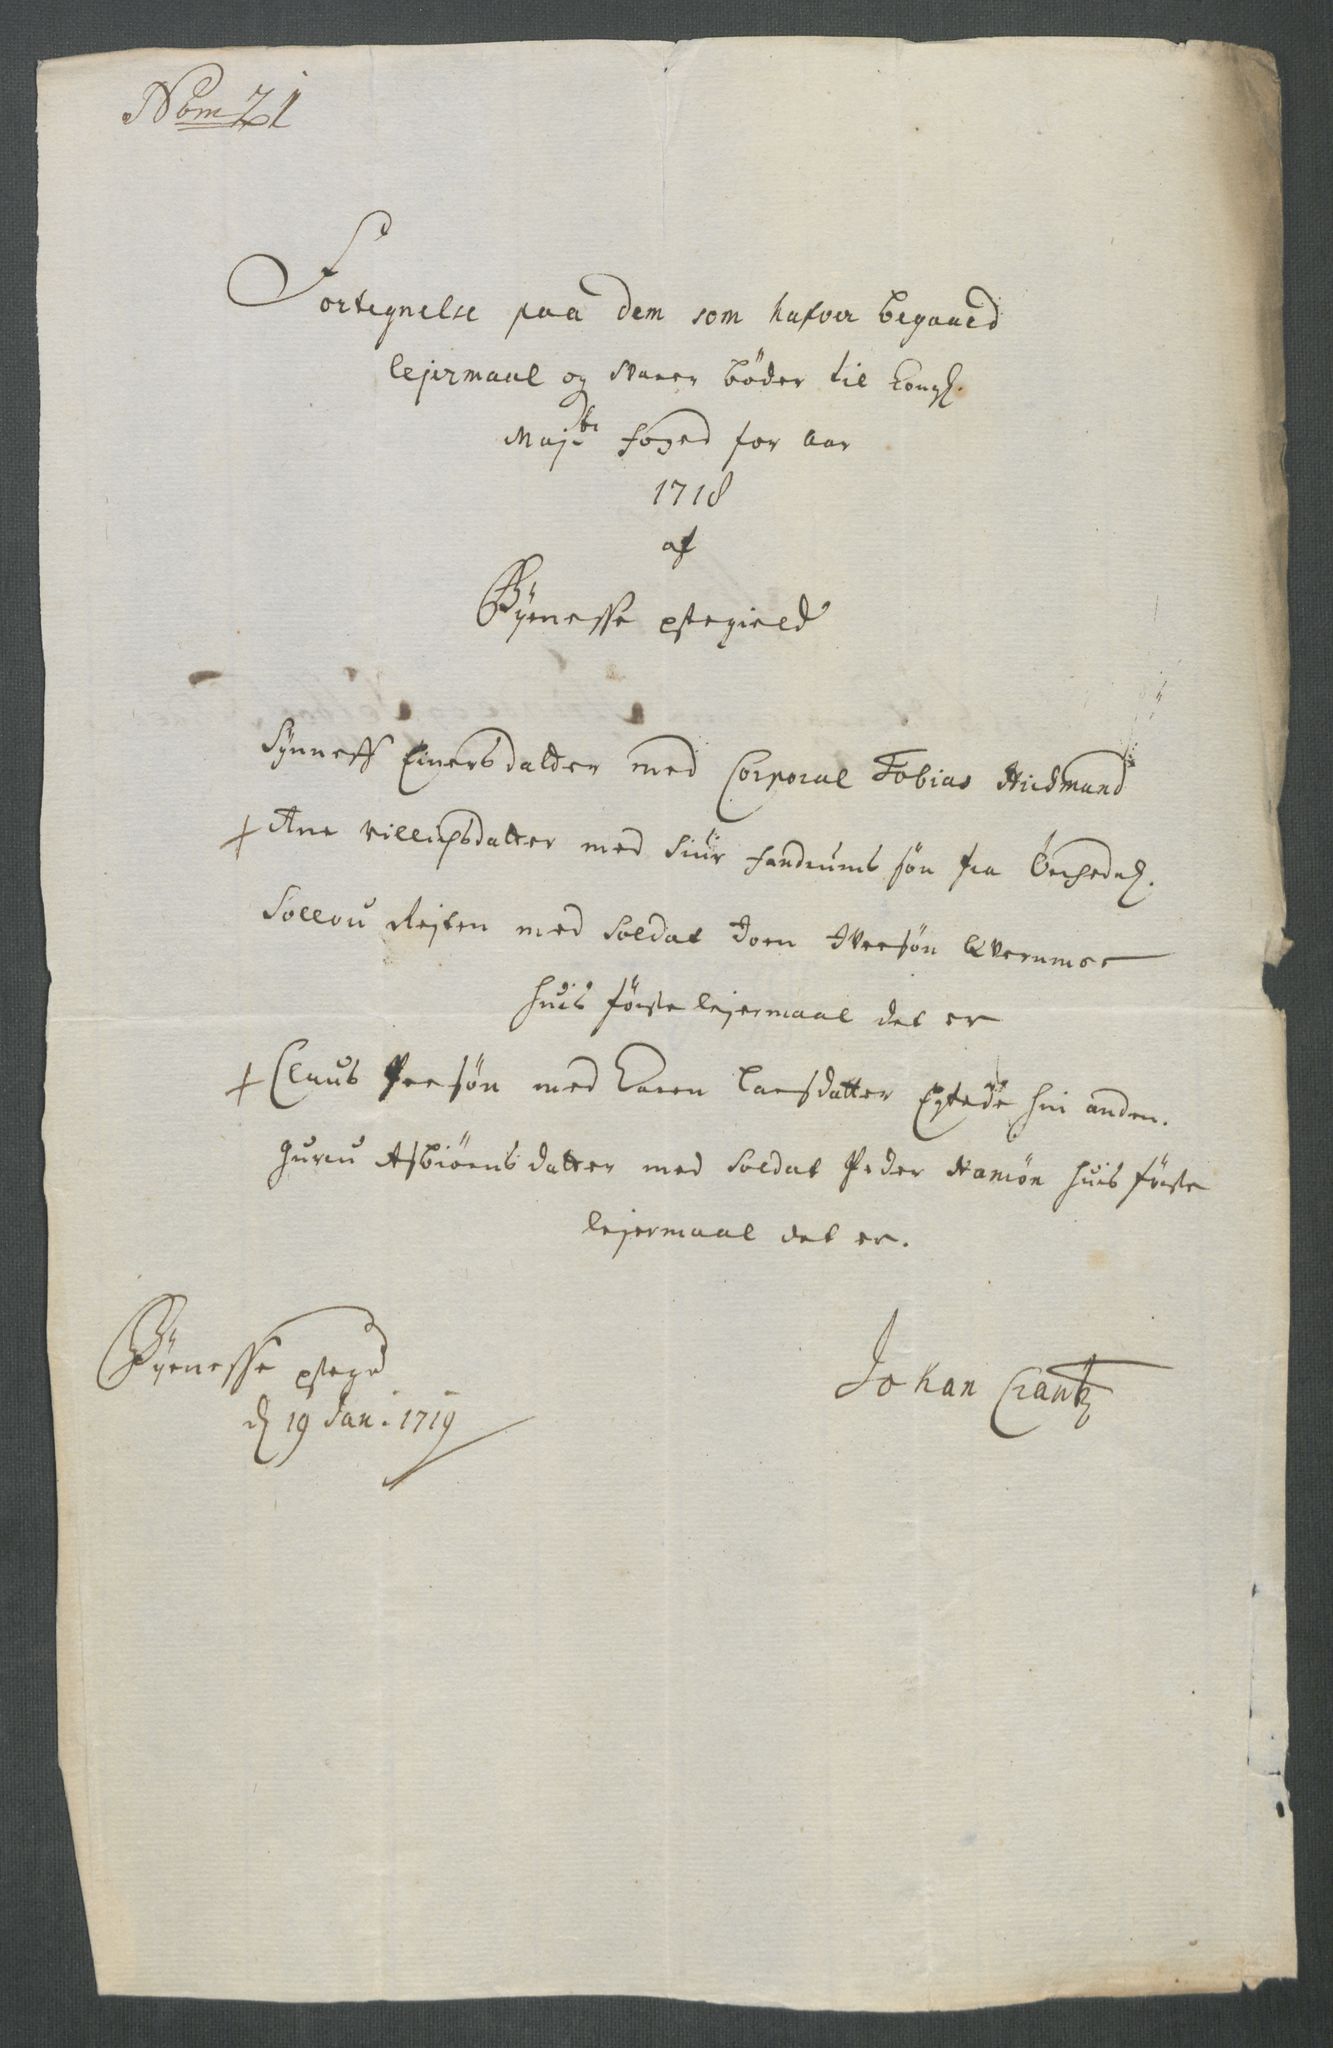 Nom 21
Fortegnelse paa dem som hafver begaaed
lejermaal og svarer böder til Kongl.
Maj.ts foged for aar
1718
af
Bÿenesse pstegield
Sÿnneff Einersdatter med Corporal Tobias
+ Ane villupsdatter med Siur søn fra
Sollou Rejten med Soldat Joen Iversön Qvernmoe
huis förste lejermaal det er
+ Claus Peersön med Karen Larsdatter Egtede hin anden.
Guru Asbiörnsdatter med Soldat Peder huis förste
lejermaal det er.
Bÿenesse pstegd
d 19 Jan. 1719
Johan Crantz